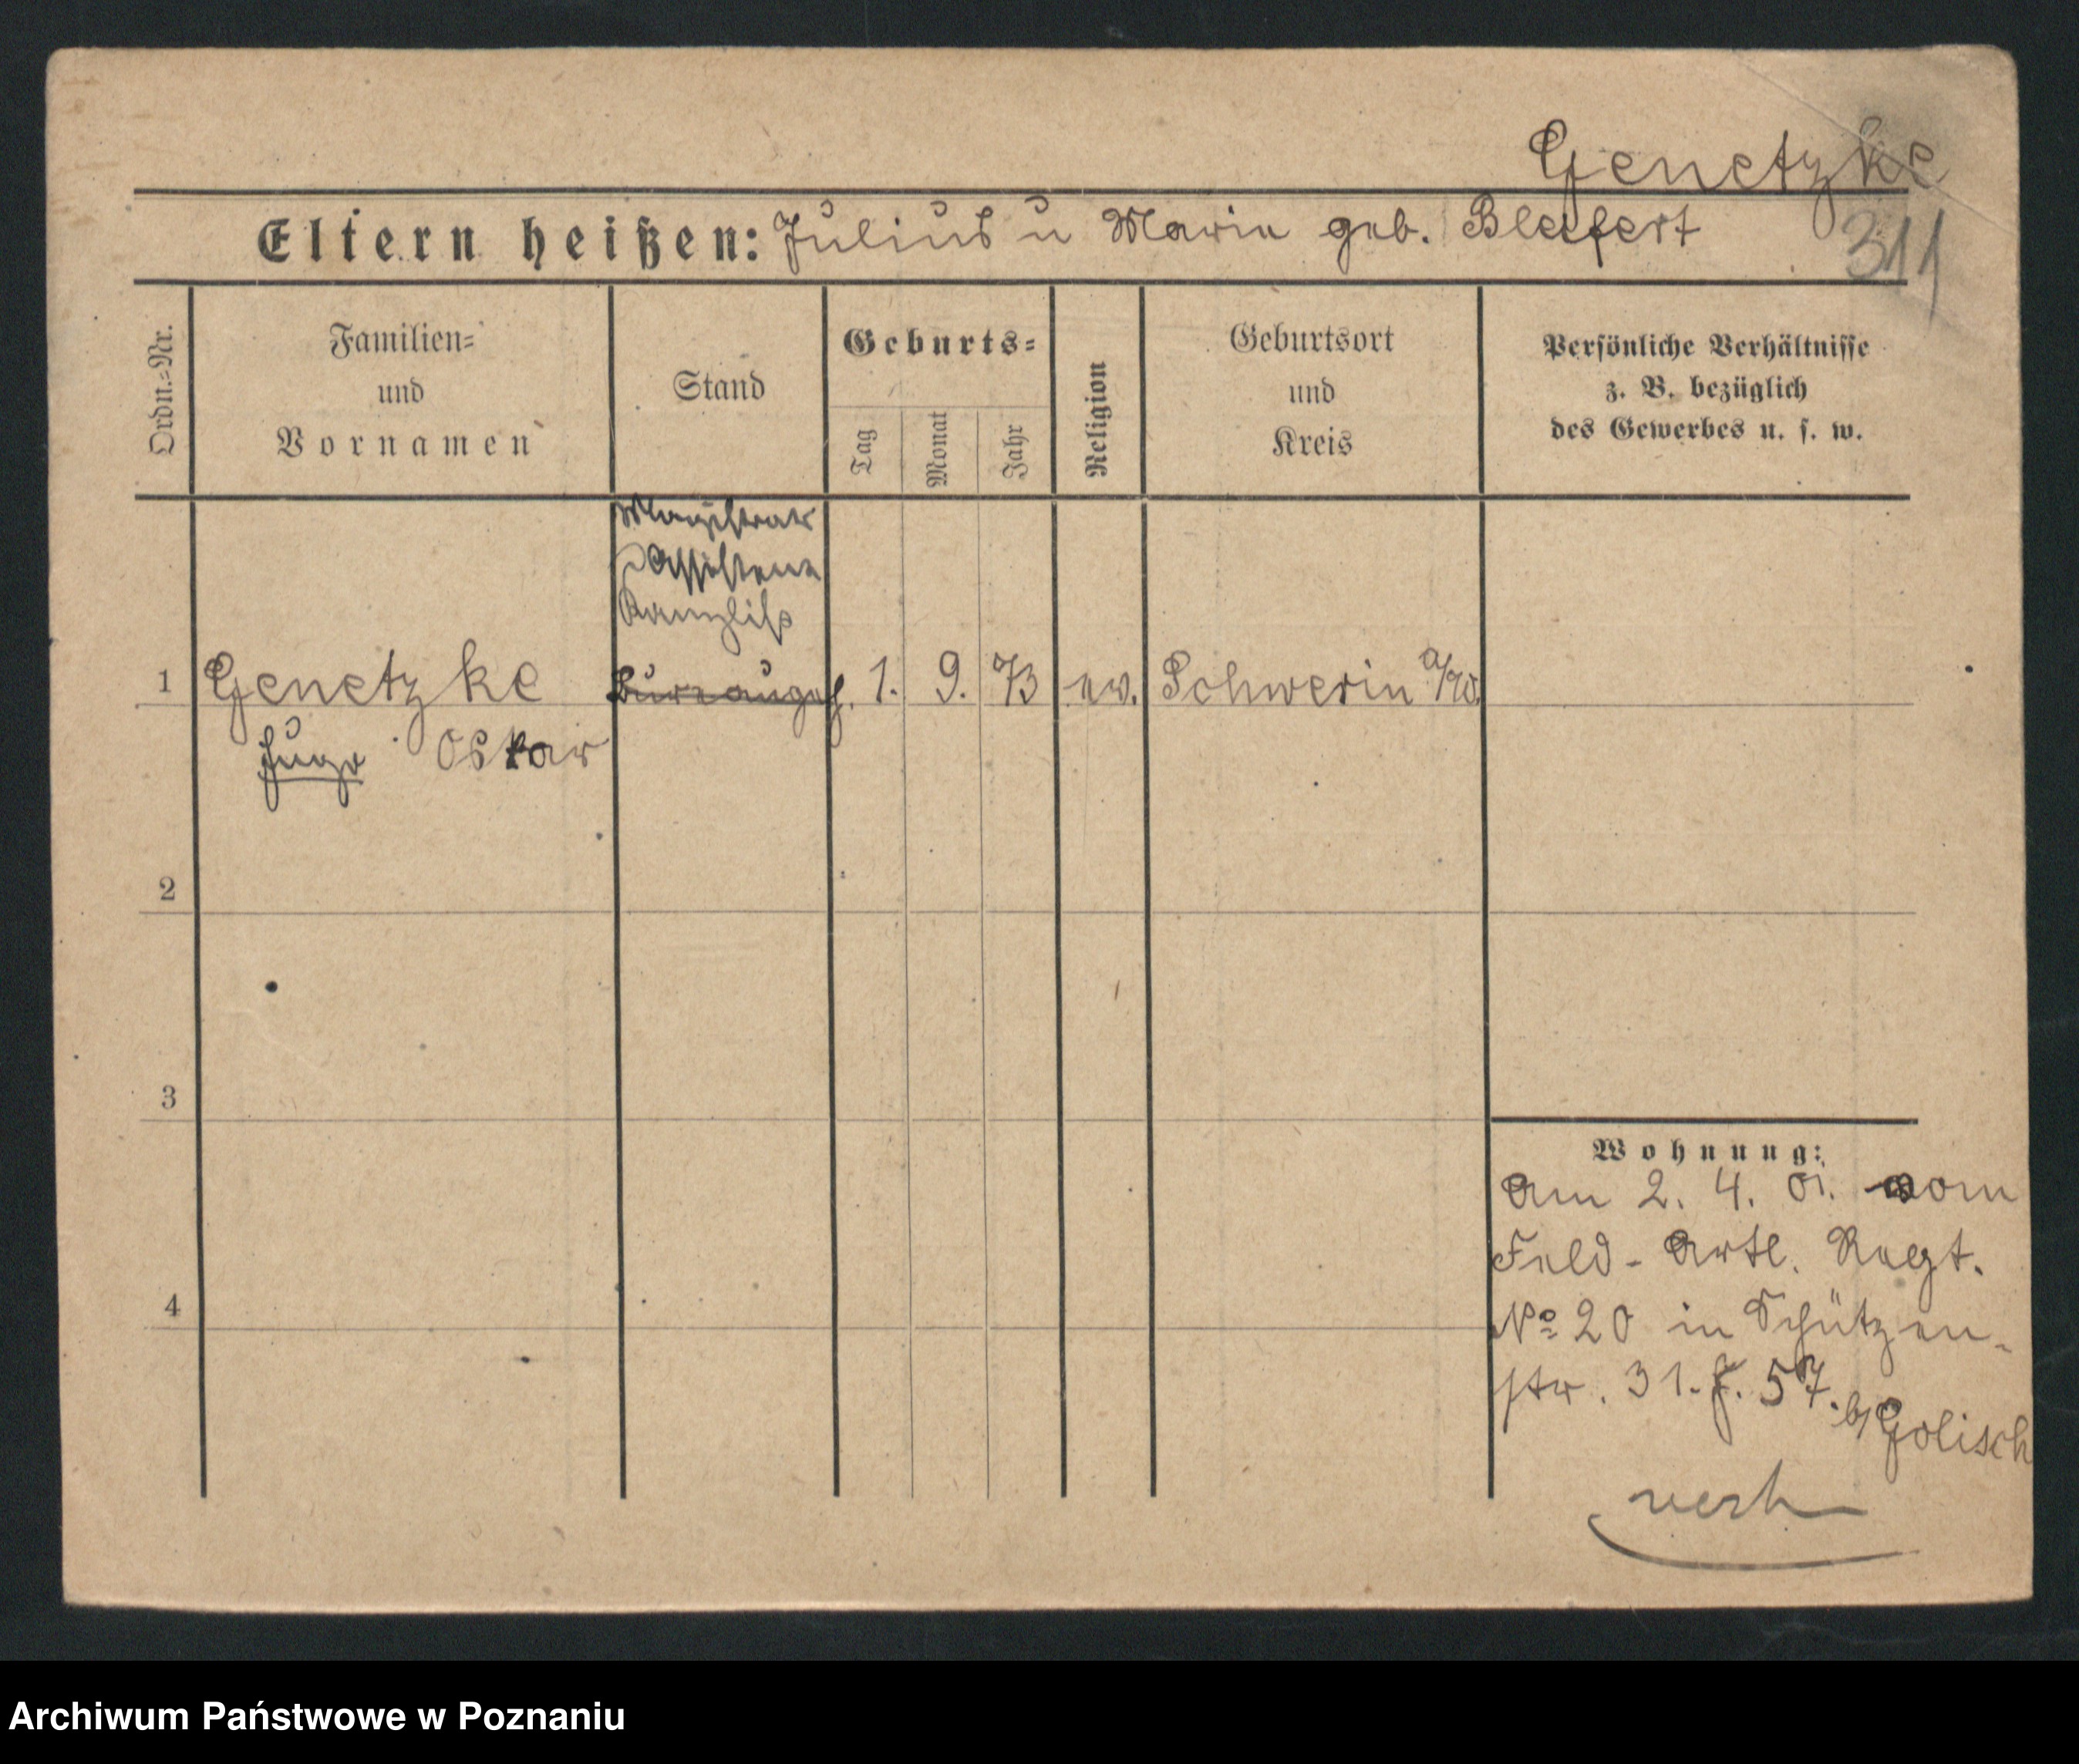 Genetzke
311
Eltern heißen: Julius u Marie geb. Bleifert
Ordn.-Nr.
Familien-
und
Vornamen
Stand
Geburts-
Tag
Monat
Jahr
Religion
Geburtsort
und
Kreis
Persönliche Verhältnisse
z. B. bezüglich
des Gewerbes u. s. w.
Magistrats
Assistent
Kanzlist
1 Genetzke Bureaugeh. 1. 9. 73 ev. Schwerin a/W.
Hugo Oskar
2
3
4
Wohnung:
Am 2. 4. 01. vom
Feld-Artl. Regt.
No 20 in Schützen-
str. 31. 57. b/ Golisch
verh
Archiwum Państwowe w Poznaniu